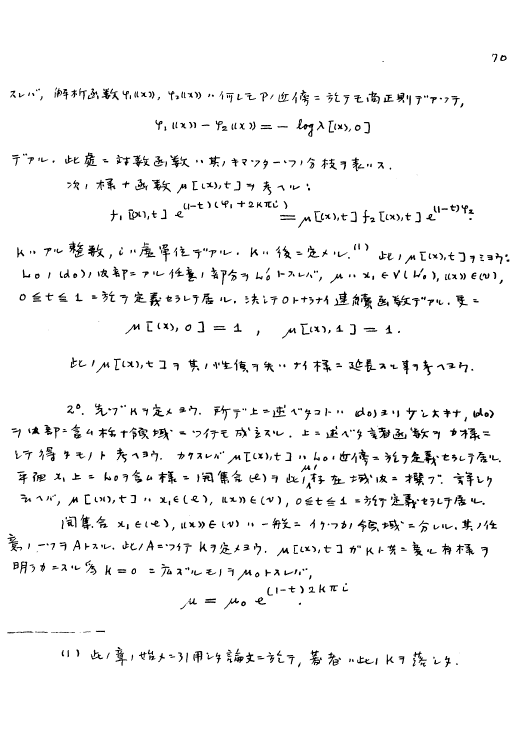 70
スレバ, 解析函数 φ₁((x)), φ₂((x)) ハ何レモ P ノ近傍ニ於テモ尚正則デアツテ,
φ₁((x)) − φ₂((x)) = − log λ[(x), 0]
デアル. 此處ニ対数函数ハ其ノキマツタ一ツノ分枝ヲ表ハス.
次ノ様ナ函数 μ[(x), t] ヲ考ヘル:
f₁[(x), t] e^{(1-t)(φ₁+2kπi)} = μ[(x), t] f₂[(x), t] e^{(1-t)φ₂}.
k ハアル整数, i ハ虚單位デアル. k ハ後ニ定メル.⁽¹⁾ 此ノ μ[(x), t] ヲミヨウ:
ω₀ ノ (d₀) ノ内部ニアル任意ノ部分ヲ ω₀′ トスレバ, μ ハ x₁ ∈ V(ω₀′), ((x)) ∈ (v),
0 ≦ t ≦ 1 ニ於テ定義セラレテ居ル. 決シテ 0 トナラナイ連續函数デアル. 更ニ
μ[(x), 0] = 1 , μ[(x), 1] = 1.
此ノ μ[(x), t] ヲ其ノ性質ヲ失ハナイ様ニ延長スル事ヲ考ヘヨウ.
2⁰. 先ヅ k ヲ定メヨウ. 所デ上ニ述ベタコトハ (d₀) ヨリ少シ大キナ, (d₀)
ヲ内部ニ含ム様ナ領域ニツイテモ成立スル. 上ニ述ベタ諸函数ヲカ様ニ
シテ得タモノト考ヘヨウ. カクスレバ μ[(x), t] ハ ω₀ ノ近傍ニ於テ定義セラレテ居ル.
平面 x₁ 上ニ ω₀ ヲ含ム様ニ閉集合 (e) ヲ此ノ μ ノ存在域内ニ構ヅ. 詳シク
云ヘバ, μ[(x), t] ハ x₁ ∈ (e), ((x)) ∈ (v), 0 ≦ t ≦ 1 ニ於テ定義セラレテ居ル.
閉集合 x₁ ∈ (e), ((x)) ∈ (v) ハ一般ニイクツカノ領域ニ分レル. 其ノ任
意ノ一ツヲ A トスル. 此ノ A ニツイテ k ヲ定メヨウ. μ[(x), t] ガ k ト共ニ変ル有様ヲ
明ラカニスル為 k = 0 ニ応ズルモノヲ μ₀ トスレバ,
μ = μ₀ e^{(1-t)2kπi}.
(1) 此ノ章ノ始メニ引用シタ論文ニ於テ, 著者ハ此ノ k ヲ落シタ.